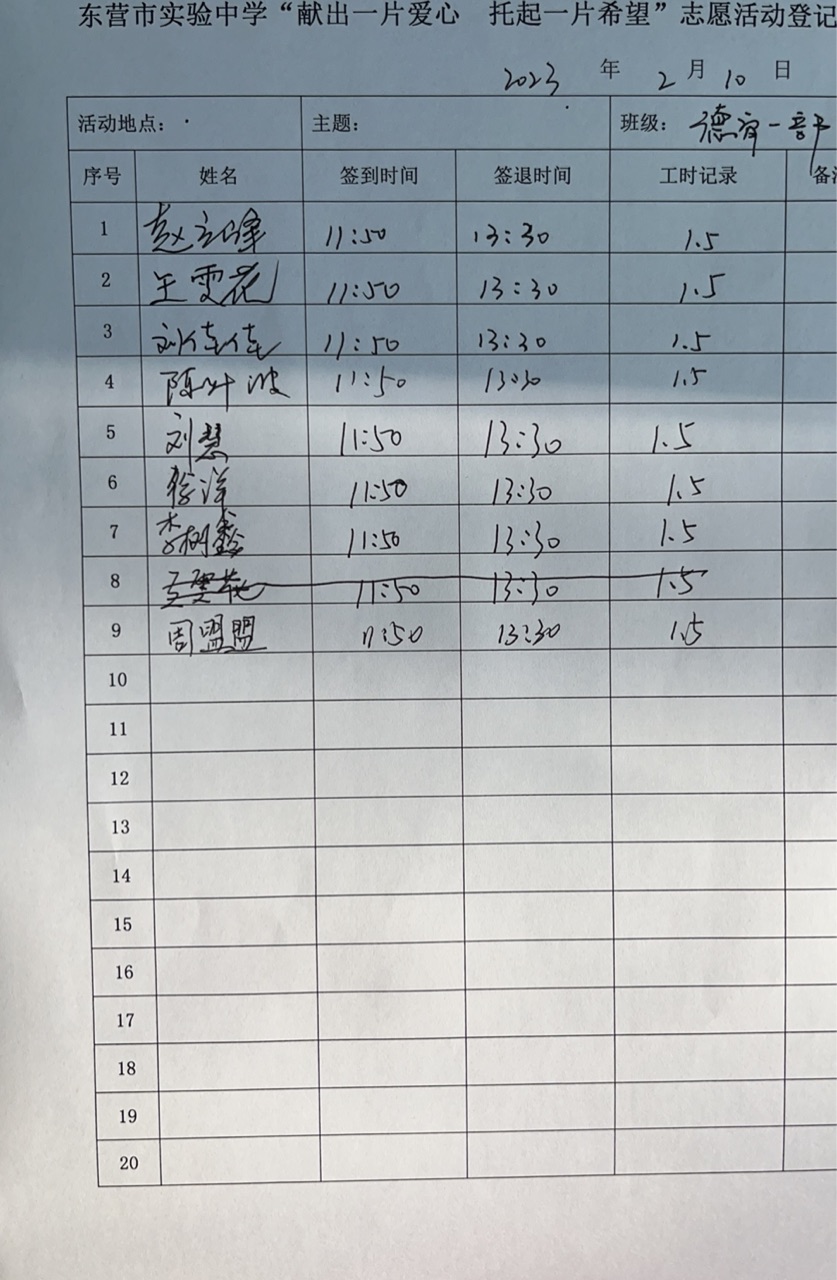 东营市实验中学“献出一片爱心 托起一片希望”志愿活动登记
2023 年 2 月 10 日
活动地点: 主题: 班级: 德育一部
序号 姓名 签到时间 签退时间 工时记录 备
1 赵立峰 11:50 13:30 1.5
2 王雯花 11:50 13:30 1.5
3 刘佳佳 11:50 13:30 1.5
4 陈叶波 11:50 13:30 1.5
5 刘慧 11:50 13:30 1.5
6 徐洋 11:50 13:30 1.5
7 李树鑫 11:50 13:30 1.5
8 11:50 13:30 1.5
9 周盟盟 11:50 13:30 1.5
10
11
12
13
14
15
16
17
18
19
20